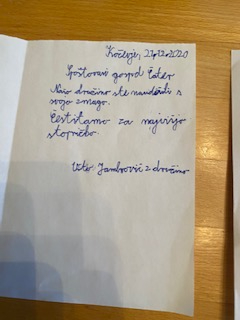 Kočevje, 27.12.2020
Spoštovani gospod Čater
Našo družino ste navdušili s
svojo zmago.
Čestitamo za najvišjo
stopničko.
Vito Jambrović z družino